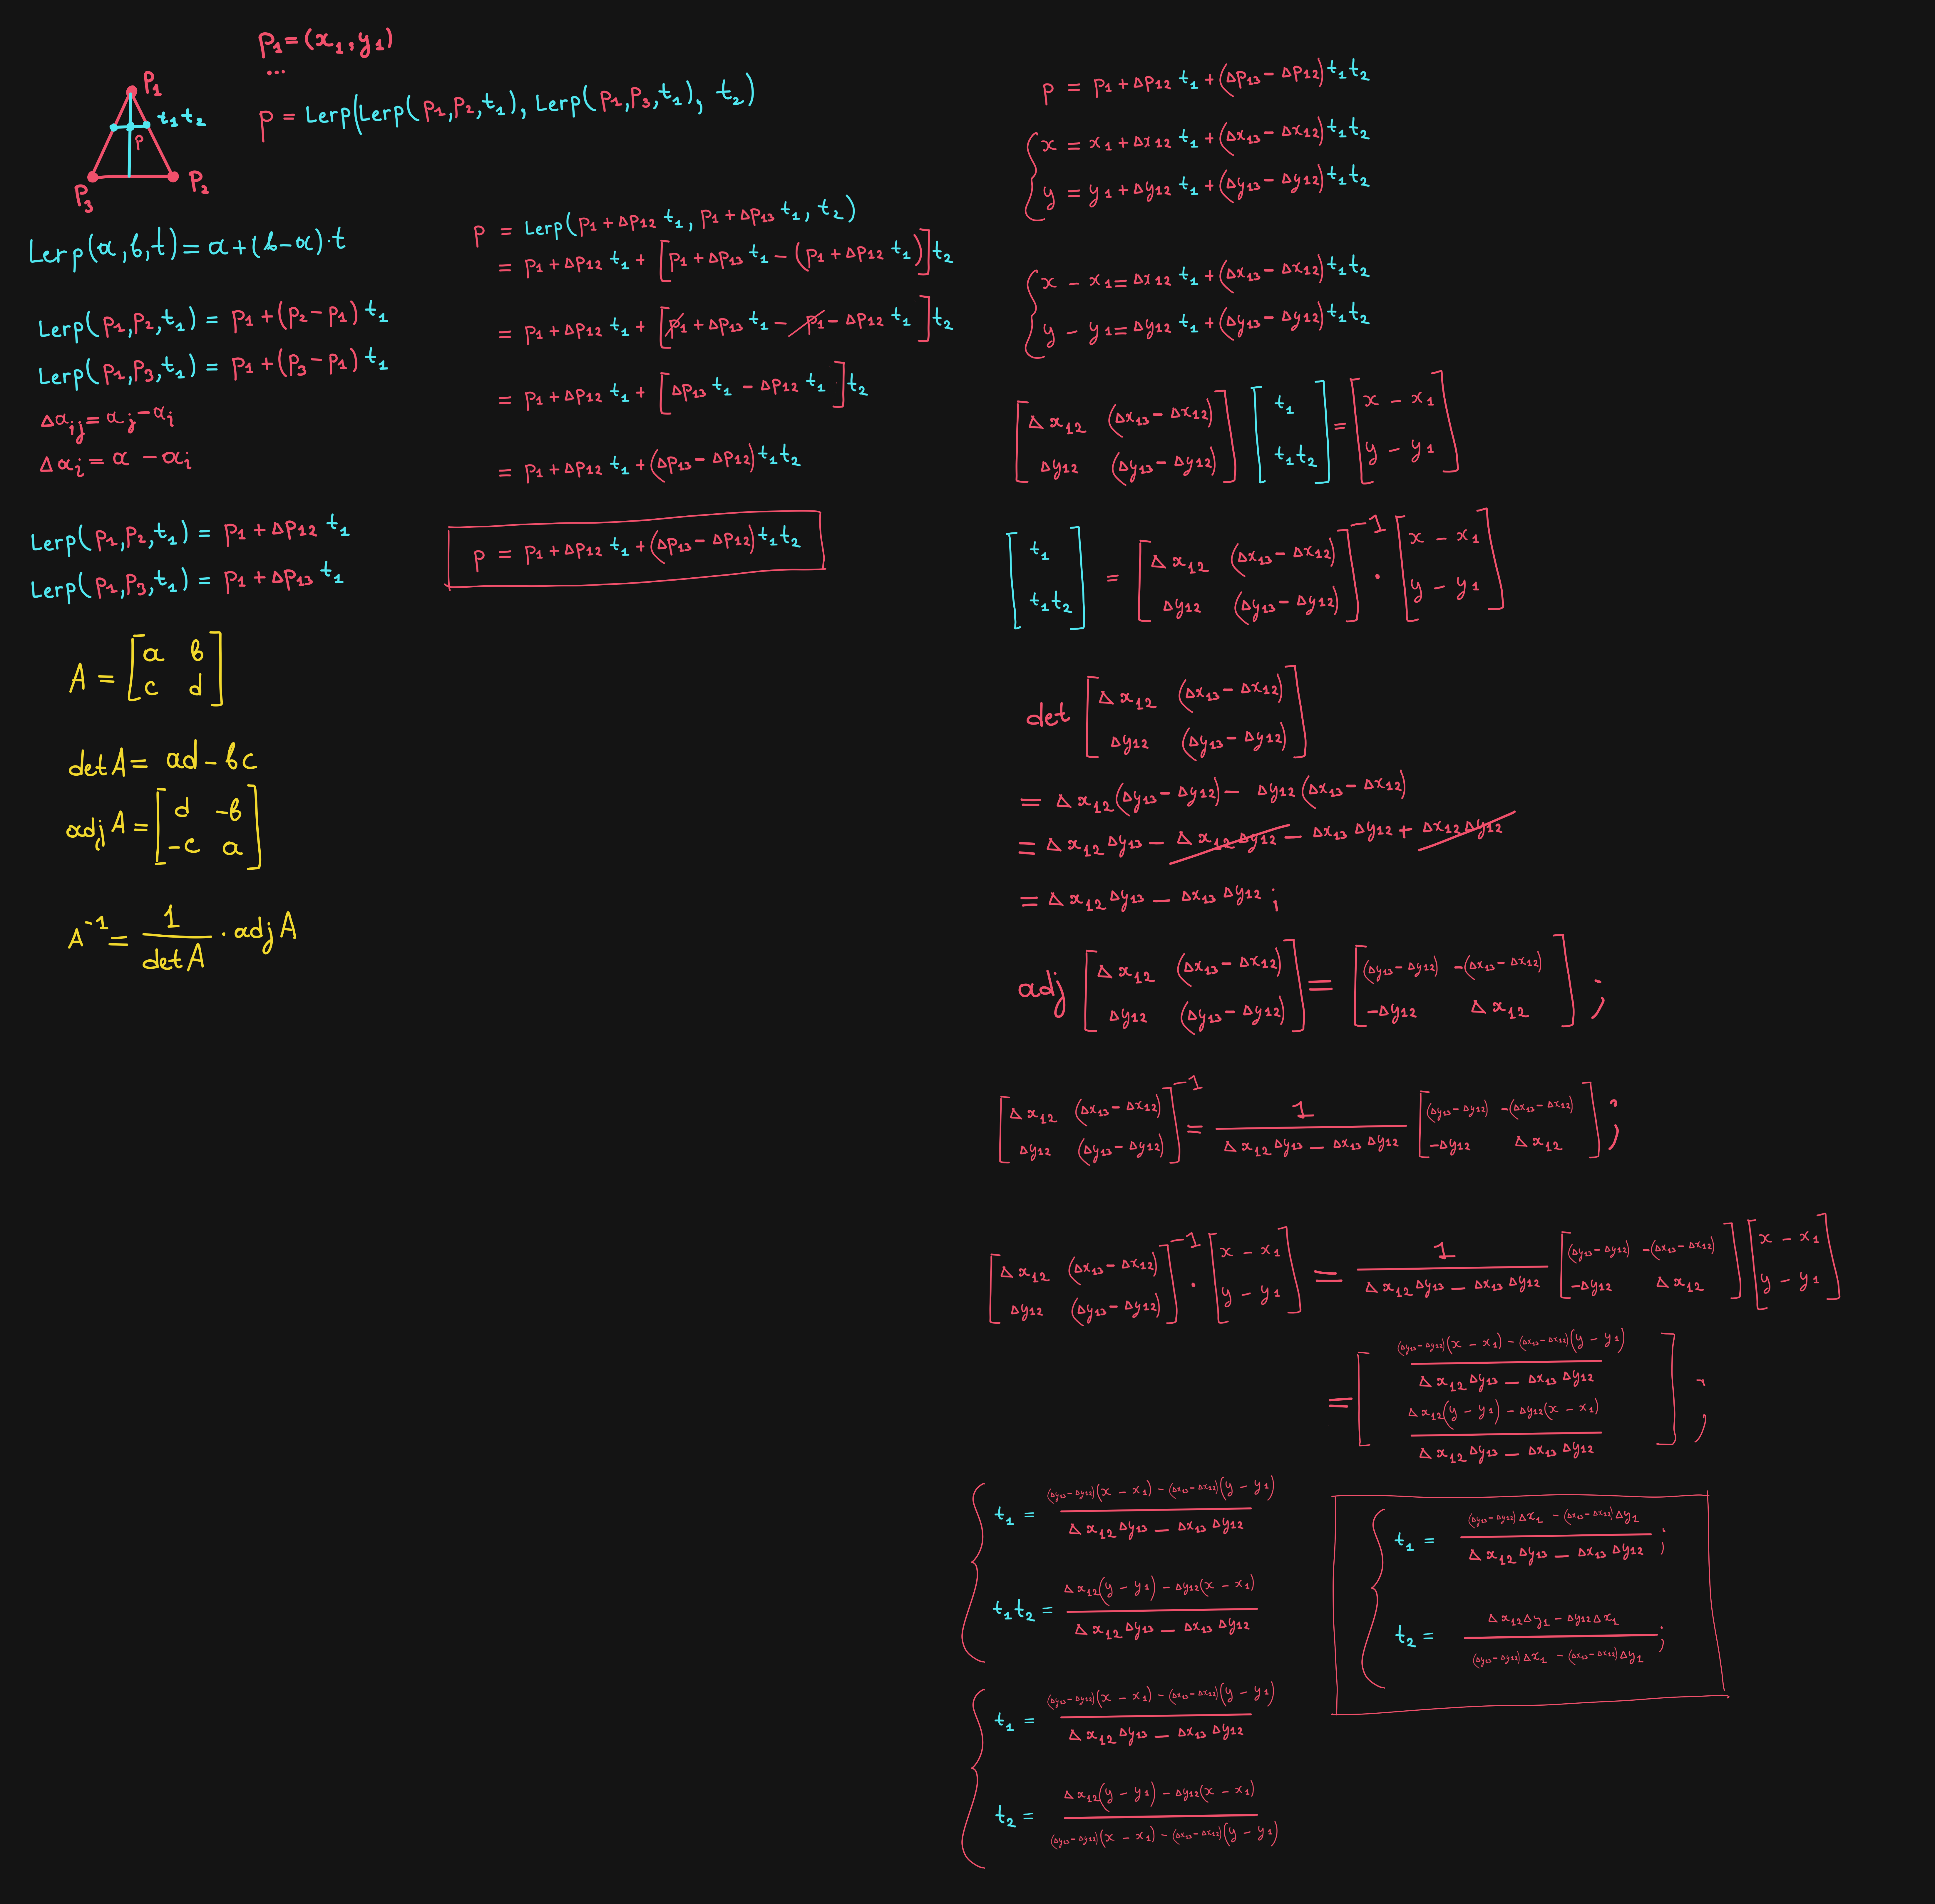 p₁=(x₁,y₁)
...
p₁
t₁t₂
p
p₃
p₂
p = Lerp(Lerp(p₁,p₂,t₁), Lerp(p₁,p₃,t₁), t₂)
Lerp(a,b,t)=a+(b-a)·t
Lerp(p₁,p₂,t₁) = p₁+(p₂-p₁)t₁
Lerp(p₁,p₃,t₁) = p₁+(p₃-p₁)t₁
Δaᵢⱼ=aⱼ-aᵢ
Δaᵢ=a-aᵢ
Lerp(p₁,p₂,t₁) = p₁+Δp₁₂ t₁
Lerp(p₁,p₃,t₁) = p₁+Δp₁₃ t₁
A = [a b
c d]
detA = ad-bc
adjA = [d -b
-c a]
A⁻¹ = 1/detA · adjA
p = Lerp(p₁+Δp₁₂ t₁, p₁+Δp₁₃ t₁, t₂)
= p₁+Δp₁₂ t₁+[p₁+Δp₁₃ t₁-(p₁+Δp₁₂ t₁)]t₂
= p₁+Δp₁₂ t₁+[p₁+Δp₁₃ t₁-p₁-Δp₁₂ t₁]t₂
= p₁+Δp₁₂ t₁+[Δp₁₃ t₁-Δp₁₂ t₁]t₂
= p₁+Δp₁₂ t₁+(Δp₁₃-Δp₁₂)t₁t₂
p = p₁+Δp₁₂ t₁+(Δp₁₃-Δp₁₂)t₁t₂
p = p₁+Δp₁₂ t₁+(Δp₁₃-Δp₁₂)t₁t₂
{x = x₁+Δx₁₂ t₁+(Δx₁₃-Δx₁₂)t₁t₂
y = y₁+Δy₁₂ t₁+(Δy₁₃-Δy₁₂)t₁t₂
{x-x₁=Δx₁₂ t₁+(Δx₁₃-Δx₁₂)t₁t₂
y-y₁=Δy₁₂ t₁+(Δy₁₃-Δy₁₂)t₁t₂
[Δx₁₂ (Δx₁₃-Δx₁₂)] [t₁] = [x-x₁]
[Δy₁₂ (Δy₁₃-Δy₁₂)] [t₁t₂] [y-y₁]
[t₁] = [Δx₁₂ (Δx₁₃-Δx₁₂)]⁻¹ · [x-x₁]
[t₁t₂] [Δy₁₂ (Δy₁₃-Δy₁₂)] [y-y₁]
det [Δx₁₂ (Δx₁₃-Δx₁₂)]
[Δy₁₂ (Δy₁₃-Δy₁₂)]
= Δx₁₂(Δy₁₃-Δy₁₂)- Δy₁₂(Δx₁₃-Δx₁₂)
= Δx₁₂Δy₁₃-Δx₁₂Δy₁₂-Δx₁₃Δy₁₂+Δx₁₂Δy₁₂
= Δx₁₂Δy₁₃-Δx₁₃Δy₁₂;
adj [Δx₁₂ (Δx₁₃-Δx₁₂)] = [(Δy₁₃-Δy₁₂) -(Δx₁₃-Δx₁₂)];
[Δy₁₂ (Δy₁₃-Δy₁₂)] [-Δy₁₂ Δx₁₂]
[Δx₁₂ (Δx₁₃-Δx₁₂)]⁻¹ = 1/(Δx₁₂Δy₁₃-Δx₁₃Δy₁₂) [(Δy₁₃-Δy₁₂) -(Δx₁₃-Δx₁₂)];
[Δy₁₂ (Δy₁₃-Δy₁₂)] [-Δy₁₂ Δx₁₂]
[Δx₁₂ (Δx₁₃-Δx₁₂)]⁻¹ · [x-x₁] = 1/(Δx₁₂Δy₁₃-Δx₁₃Δy₁₂) [(Δy₁₃-Δy₁₂) -(Δx₁₃-Δx₁₂)] [x-x₁]
[Δy₁₂ (Δy₁₃-Δy₁₂)] [y-y₁] [-Δy₁₂ Δx₁₂] [y-y₁]
= [((Δy₁₃-Δy₁₂)(x-x₁)-(Δx₁₃-Δx₁₂)(y-y₁))/(Δx₁₂Δy₁₃-Δx₁₃Δy₁₂)
(Δx₁₂(y-y₁)-Δy₁₂(x-x₁))/(Δx₁₂Δy₁₃-Δx₁₃Δy₁₂)];
{t₁ = ((Δy₁₃-Δy₁₂)(x-x₁)-(Δx₁₃-Δx₁₂)(y-y₁))/(Δx₁₂Δy₁₃-Δx₁₃Δy₁₂)
t₁t₂ = (Δx₁₂(y-y₁)-Δy₁₂(x-x₁))/(Δx₁₂Δy₁₃-Δx₁₃Δy₁₂)
{t₁ = ((Δy₁₃-Δy₁₂)(x-x₁)-(Δx₁₃-Δx₁₂)(y-y₁))/(Δx₁₂Δy₁₃-Δx₁₃Δy₁₂)
t₂ = (Δx₁₂(y-y₁)-Δy₁₂(x-x₁))/((Δy₁₃-Δy₁₂)(x-x₁)-(Δx₁₃-Δx₁₂)(y-y₁))
{t₁ = ((Δy₁₃-Δy₁₂)Δx₁-(Δx₁₃-Δx₁₂)Δy₁)/(Δx₁₂Δy₁₃-Δx₁₃Δy₁₂);
t₂ = (Δx₁₂Δy₁-Δy₁₂Δx₁)/((Δy₁₃-Δy₁₂)Δx₁-(Δx₁₃-Δx₁₂)Δy₁);